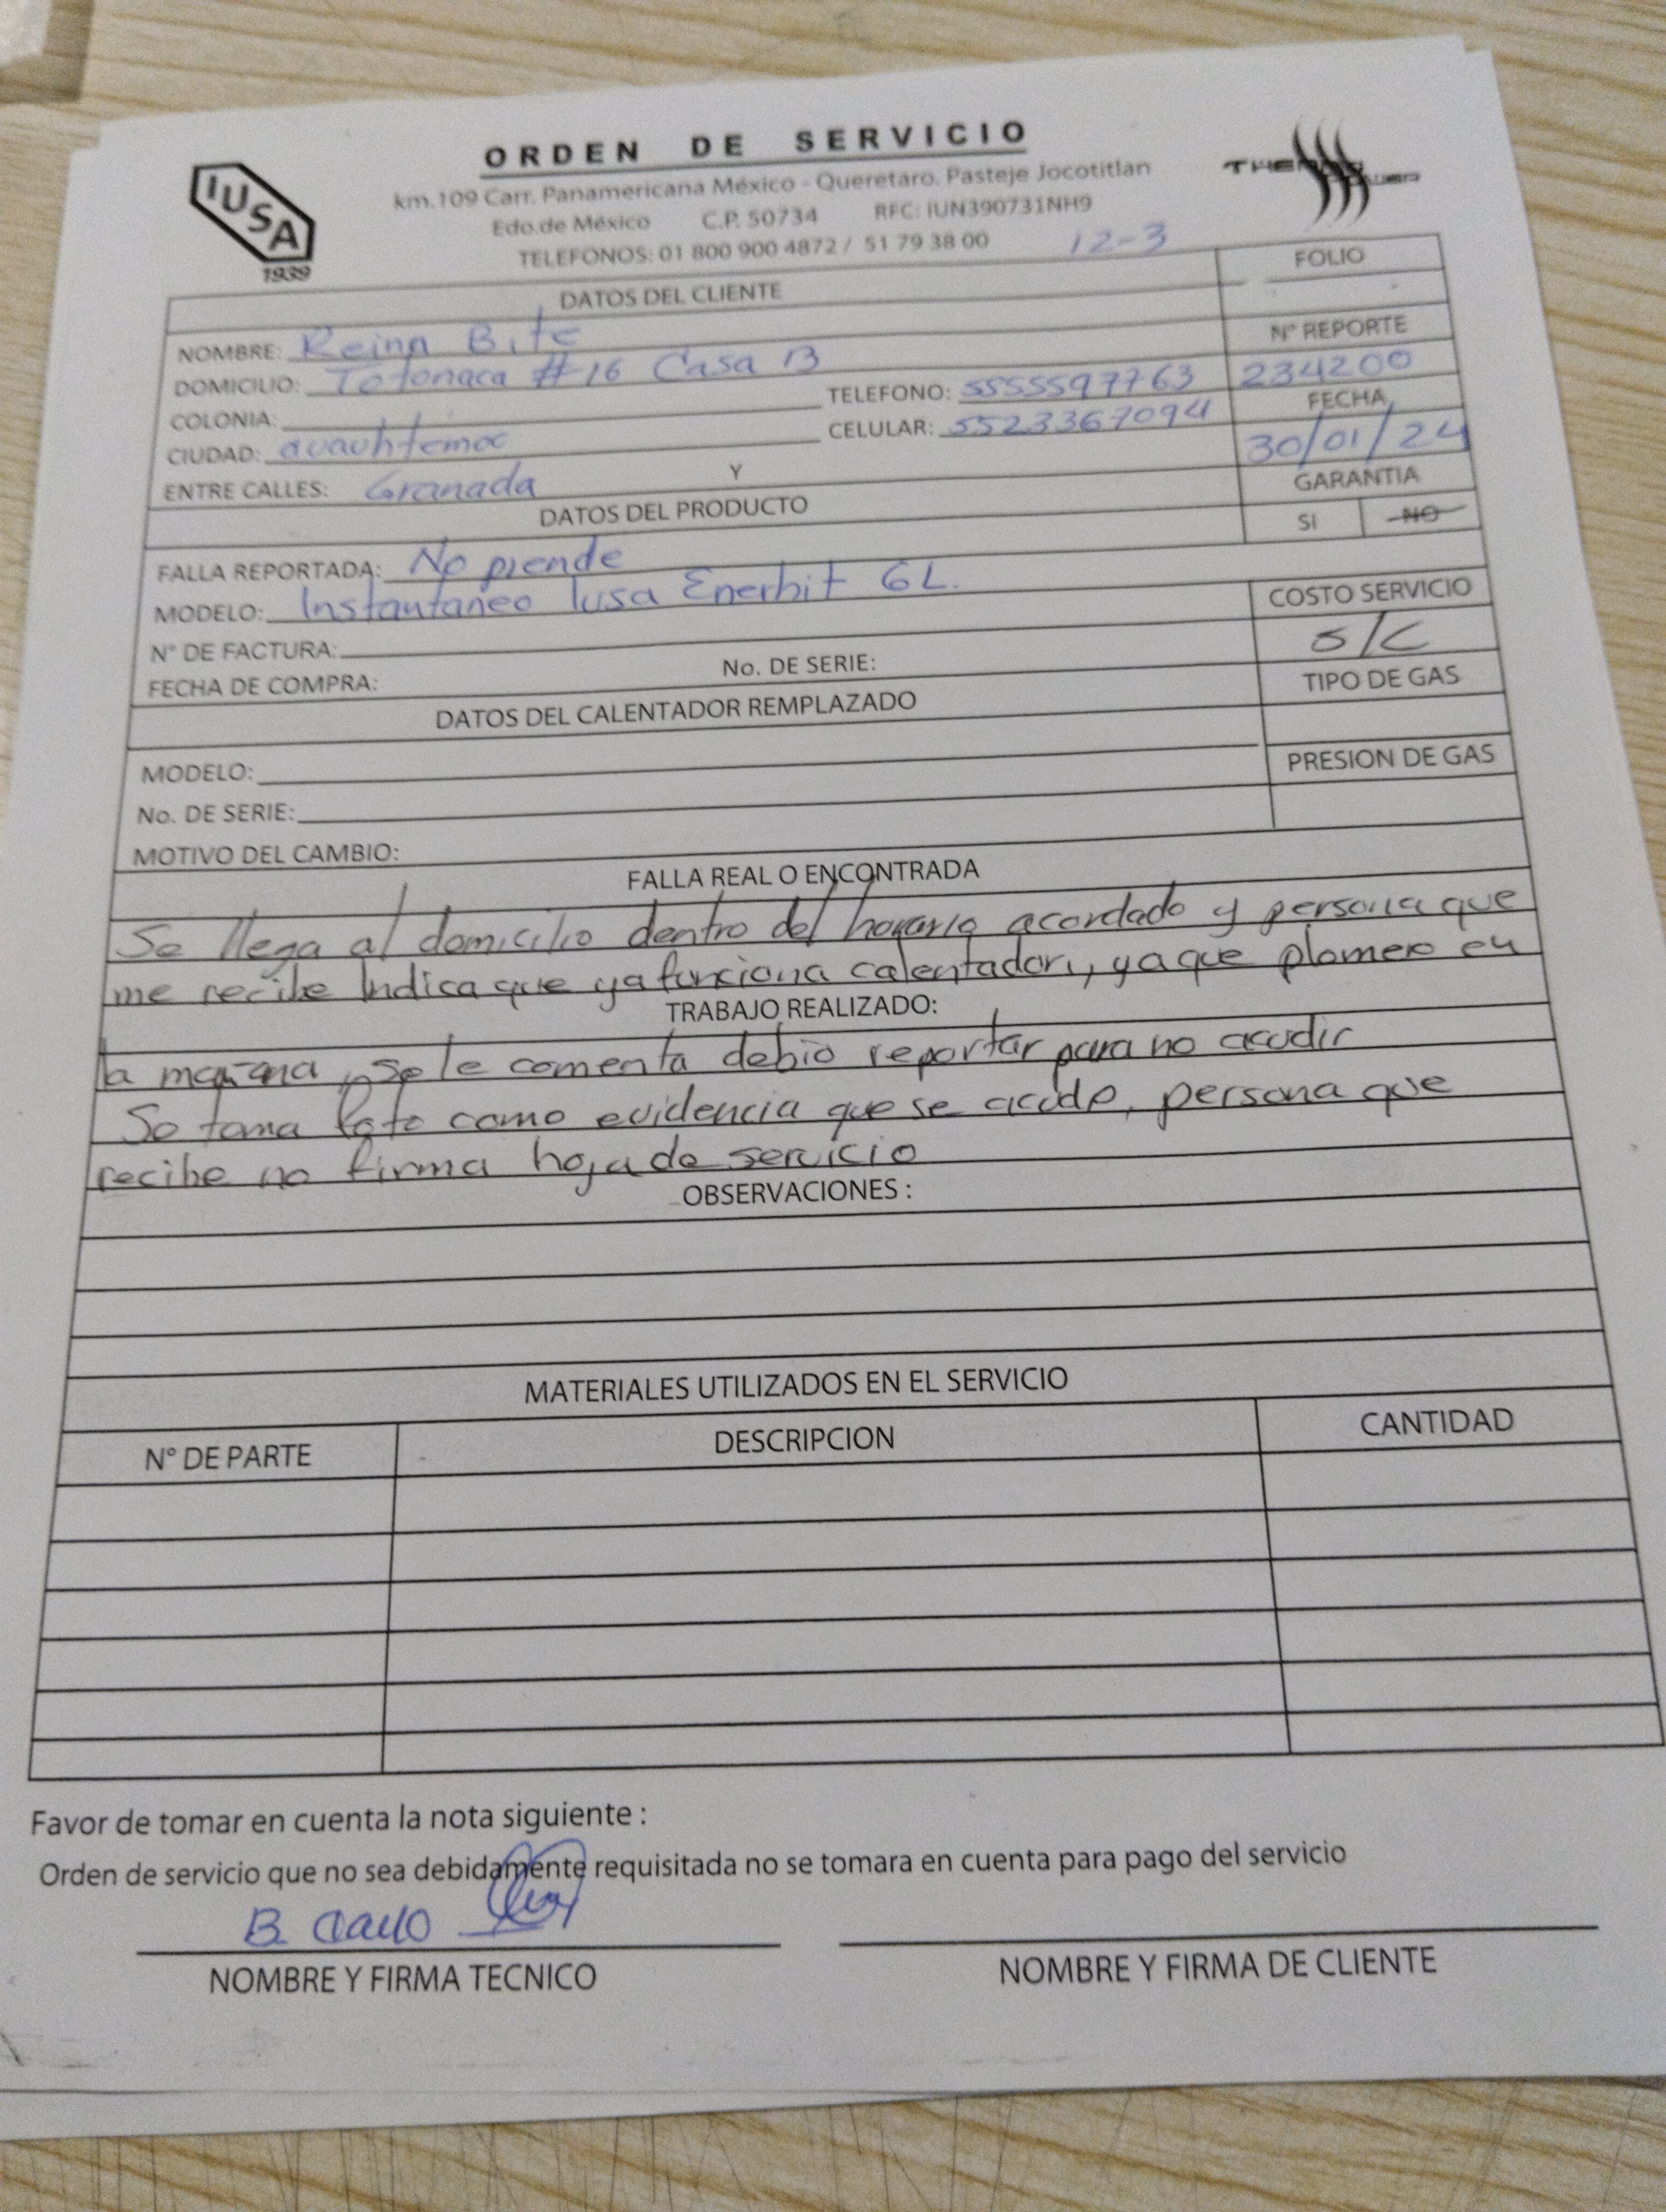 ORDEN DE SERVICIO
IUSA
1939
km.109 Carr. Panamericana México - Queretaro. Pasteje Jocotitlan
THERMO POWER
Edo.de México C.P. 50734 RFC: IUN390731NH9
TELEFONOS: 01 800 900 4872 / 51 79 38 00 12-3
DATOS DEL CLIENTE
FOLIO
NOMBRE: Reina Bite
Nº REPORTE
DOMICILIO: Totonaca #16 Casa B
234200
COLONIA: TELEFONO: 5555597763
FECHA
CIUDAD: cuauhtemoc CELULAR: 5523367094
30/01/24
ENTRE CALLES: Granada Y
GARANTIA
DATOS DEL PRODUCTO
SI NO
FALLA REPORTADA: No prende
MODELO: Instantaneo Iusa Enerhit 6L.
COSTO SERVICIO
Nº DE FACTURA:
S/C
FECHA DE COMPRA: No. DE SERIE:
TIPO DE GAS
DATOS DEL CALENTADOR REMPLAZADO
MODELO:
PRESION DE GAS
No. DE SERIE:
MOTIVO DEL CAMBIO:
FALLA REAL O ENCONTRADA
Se llega al domicilio dentro del horario acordado y persona que
me recibe Indica que ya funciona calentador, ya que plomero en
TRABAJO REALIZADO:
la mañana, se le comenta debio reportar para no acudir
Se toma foto como evidencia que se acude, persona que
recibe no firma hoja de servicio
OBSERVACIONES :
MATERIALES UTILIZADOS EN EL SERVICIO
Nº DE PARTE DESCRIPCION CANTIDAD
Favor de tomar en cuenta la nota siguiente :
Orden de servicio que no sea debidamente requisitada no se tomara en cuenta para pago del servicio
B.
NOMBRE Y FIRMA TECNICO NOMBRE Y FIRMA DE CLIENTE